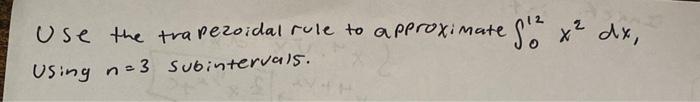 Use the trapezoidal rule to approximate ∫₀¹² x² dx,
Using n=3 subintervals.